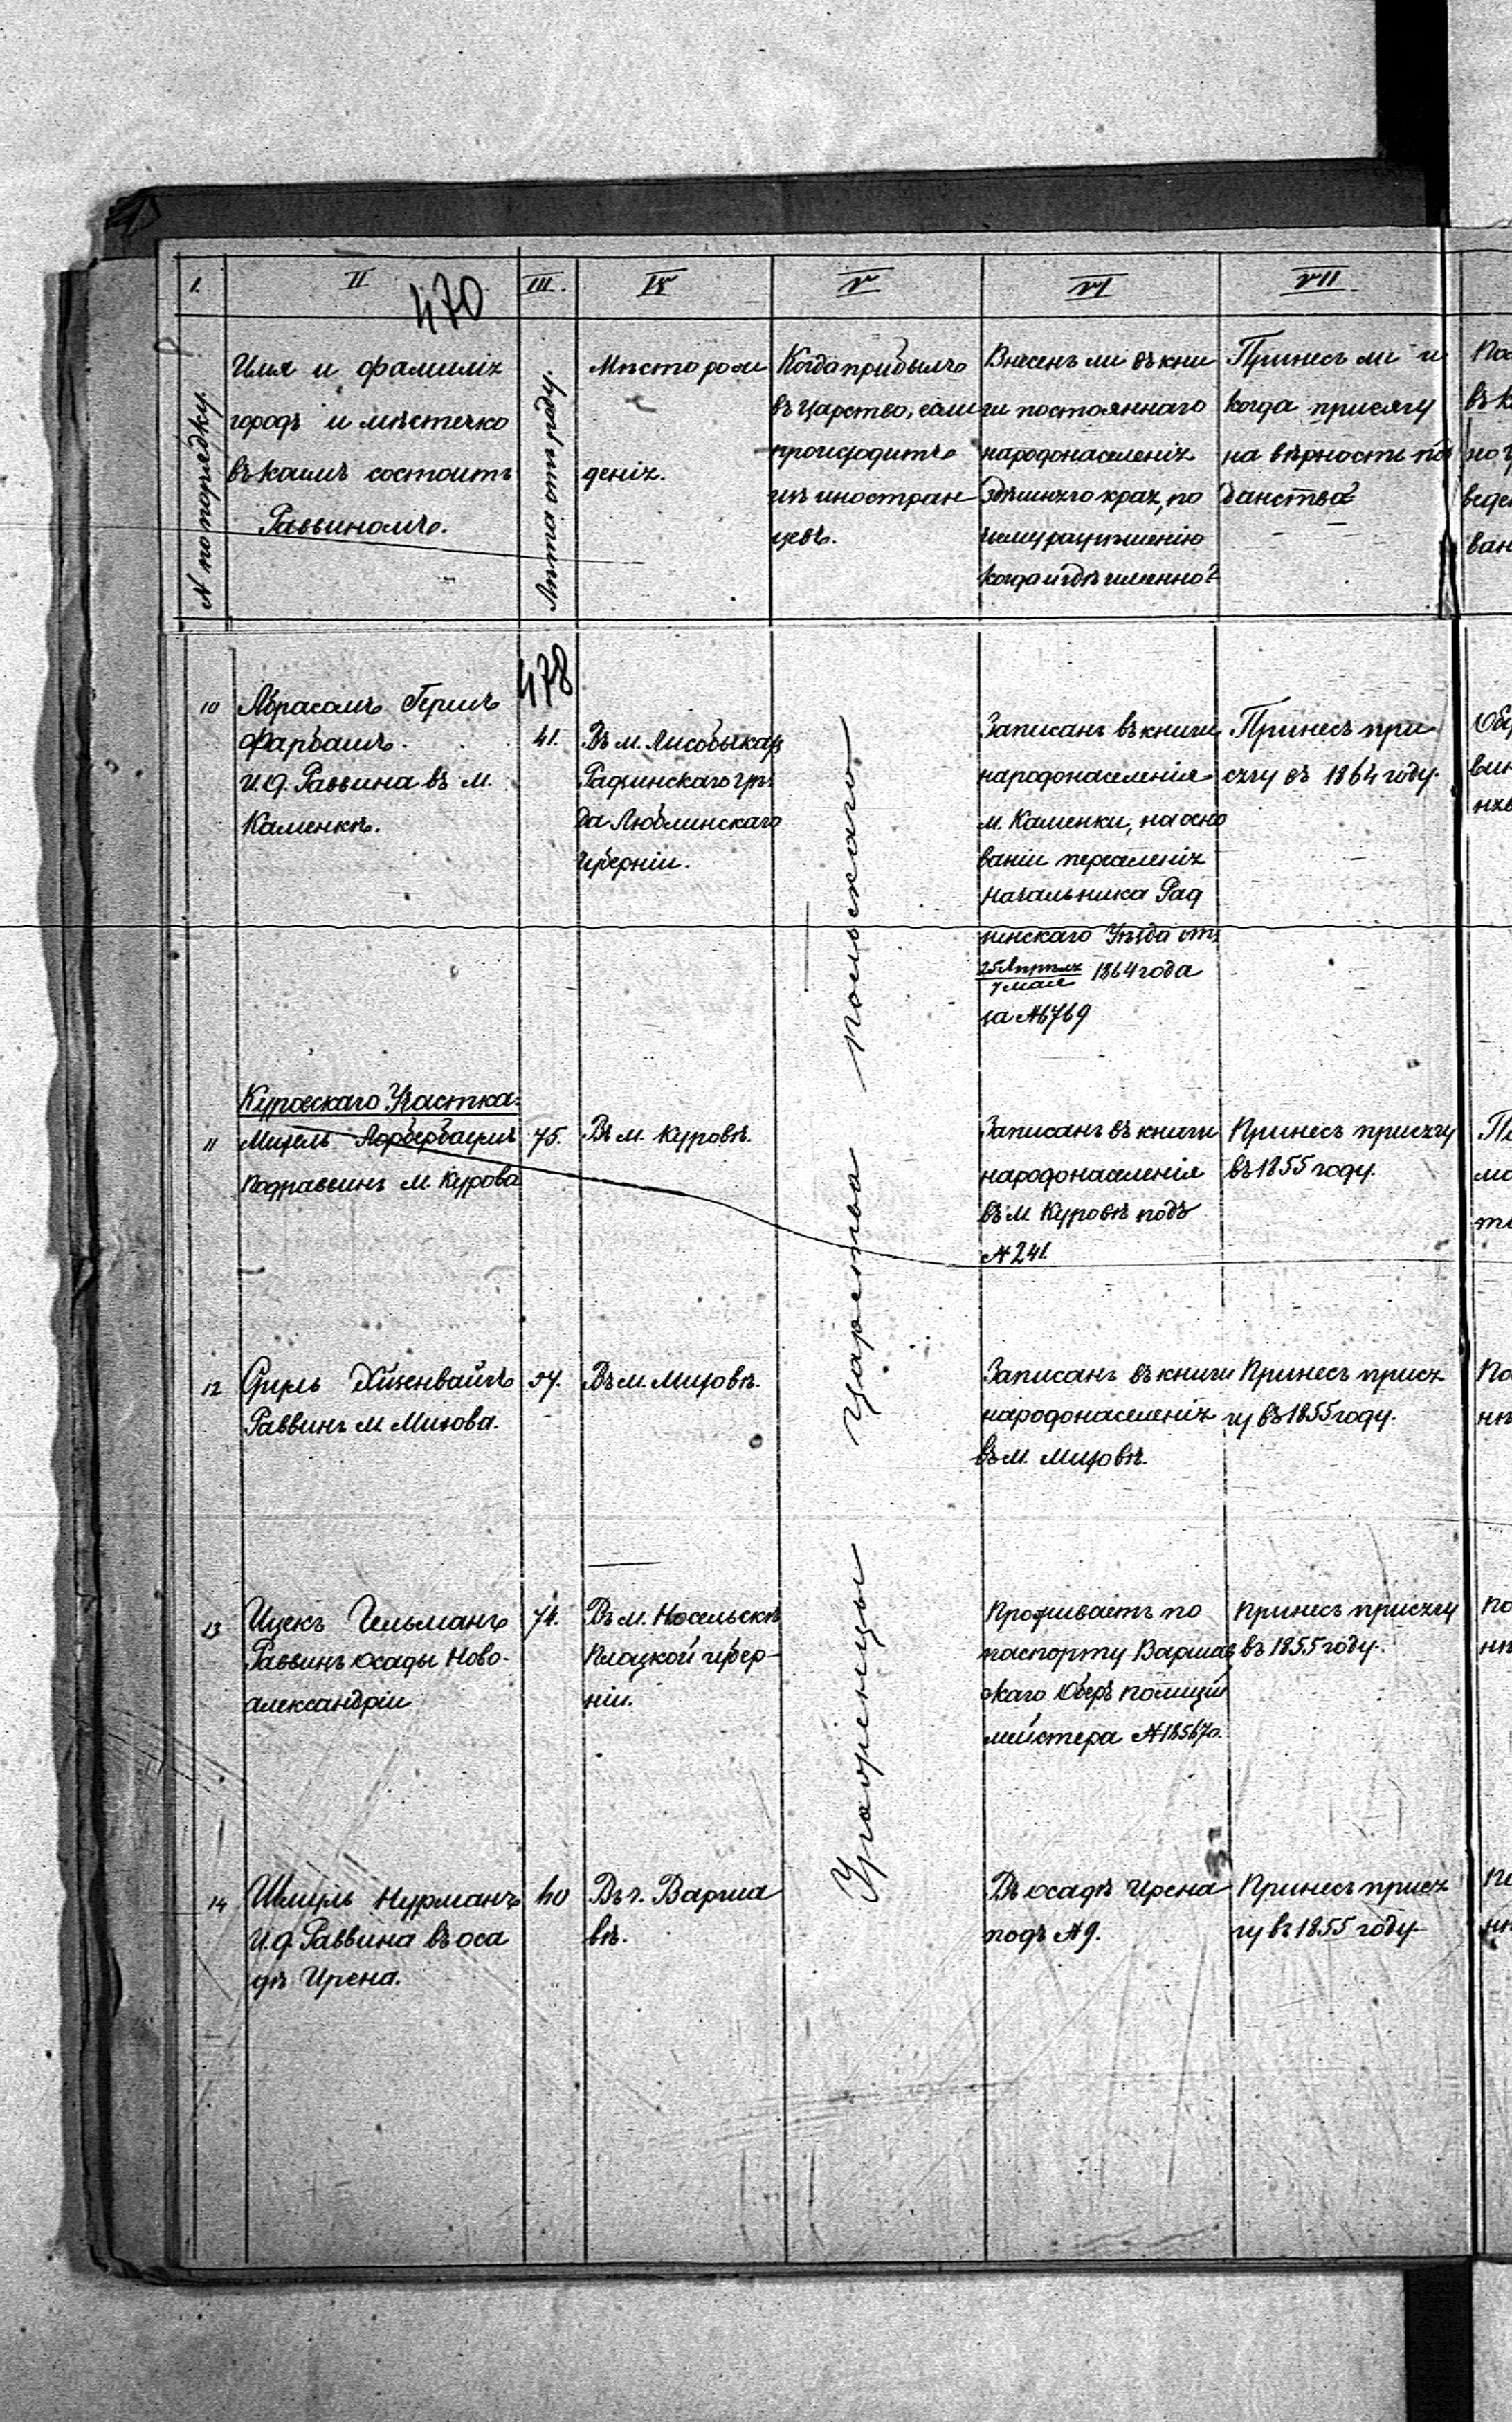 I.
II
III.
IV
V
VI
VII
470
№ по порядку.
Имя и фамилія
городъ и мѣстечко
въ коимъ состоитъ
Раввиномъ.
Мѣсто рож
денія.
Когда прибылъ
въ царство, если
происходитъ
изъ иностран
цевъ.
Внесенъ ли въ кни
ги постояннаго
народонаселенія
здѣшняго края, по
чьему разрѣшенію
когда и гдѣ именно?
Принесъ ли и
когда присягу
на вѣрность под
данства
478
10
Абрагамъ Герш
Фарбашъ.
И. д. Раввина въ м.
Каменкѣ.
41.
Въ м. Лисобыкахъ
Радинскаго уѣз
да Люблинскаго
губерніи.
Записанъ въ книги
народонаселенія
м. Каменки, на осно
ваніи
Начальника Рад
инскаго Уѣзда отъ
25 Апрѣля
7 мая 1864 года
за № 6769
Принесъ при
сягу въ 1864 году.
Куровскаго Участка:
11
Подраввинъ м Курова
75.
Въ м. Куровѣ.
Записанъ въ книги
народонаселенія
въ м. Куровѣ подъ
№ 241.
Принесъ присягу
въ 1855 году.
12
Раввинъ м.
57.
Въ м.
Записанъ въ книги
народонаселенія
въ м.
Принесъ прися
гу въ 1855 году.
13
Ицекъ Гельманъ
Раввинъ осады Ново-
александріи
74.
Въ м. Насельскѣ
Плоцкой губер-
ніи.
Проживаетъ по
паспорту Варшав
скаго Оберъ Полиций
мейстера № 185670.
Принесъ присягу
въ 1855 году.
14
Шмуль Нурманъ
И. д. Раввина въ оса
дѣ Ирена.
40
Въ г. Варша
вѣ.
Въ осадѣ Ирена
подъ № 9.
Принесъ прися
гу въ 1855 году
Уроженцы Царства Польскаго